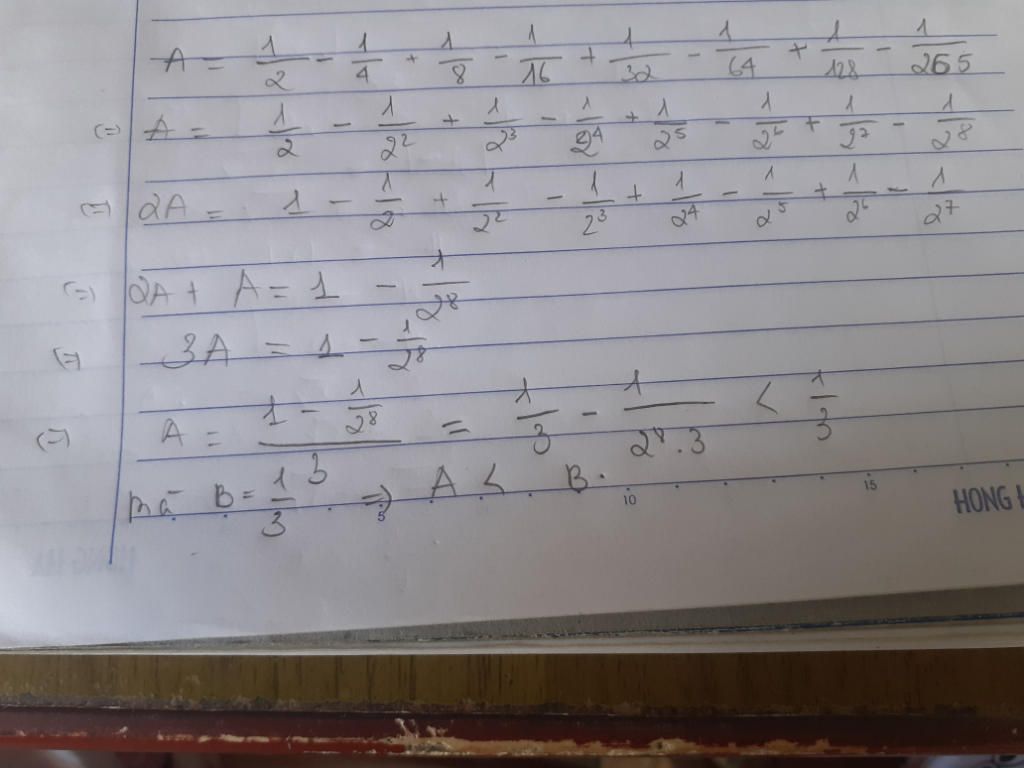 A = 1/2 - 1/4 + 1/8 - 1/16 + 1/32 - 1/64 + 1/128 - 1/265
(=) A = 1/2 - 1/2² + 1/2³ - 1/2⁴ + 1/2⁵ - 1/2⁶ + 1/2⁷ - 1/2⁸
(=) 2A = 1 - 1/2 + 1/2² - 1/2³ + 1/2⁴ - 1/2⁵ + 1/2⁶ - 1/2⁷
(=) 2A + A = 1 - 1/2⁸
(=) 3A = 1 - 1/2⁸
(=) A = (1 - 1/2⁸)/3 = 1/3 - 1/(2⁸.3) < 1/3
mà B = 1/3 => A < B.
5 10 15
HONG H